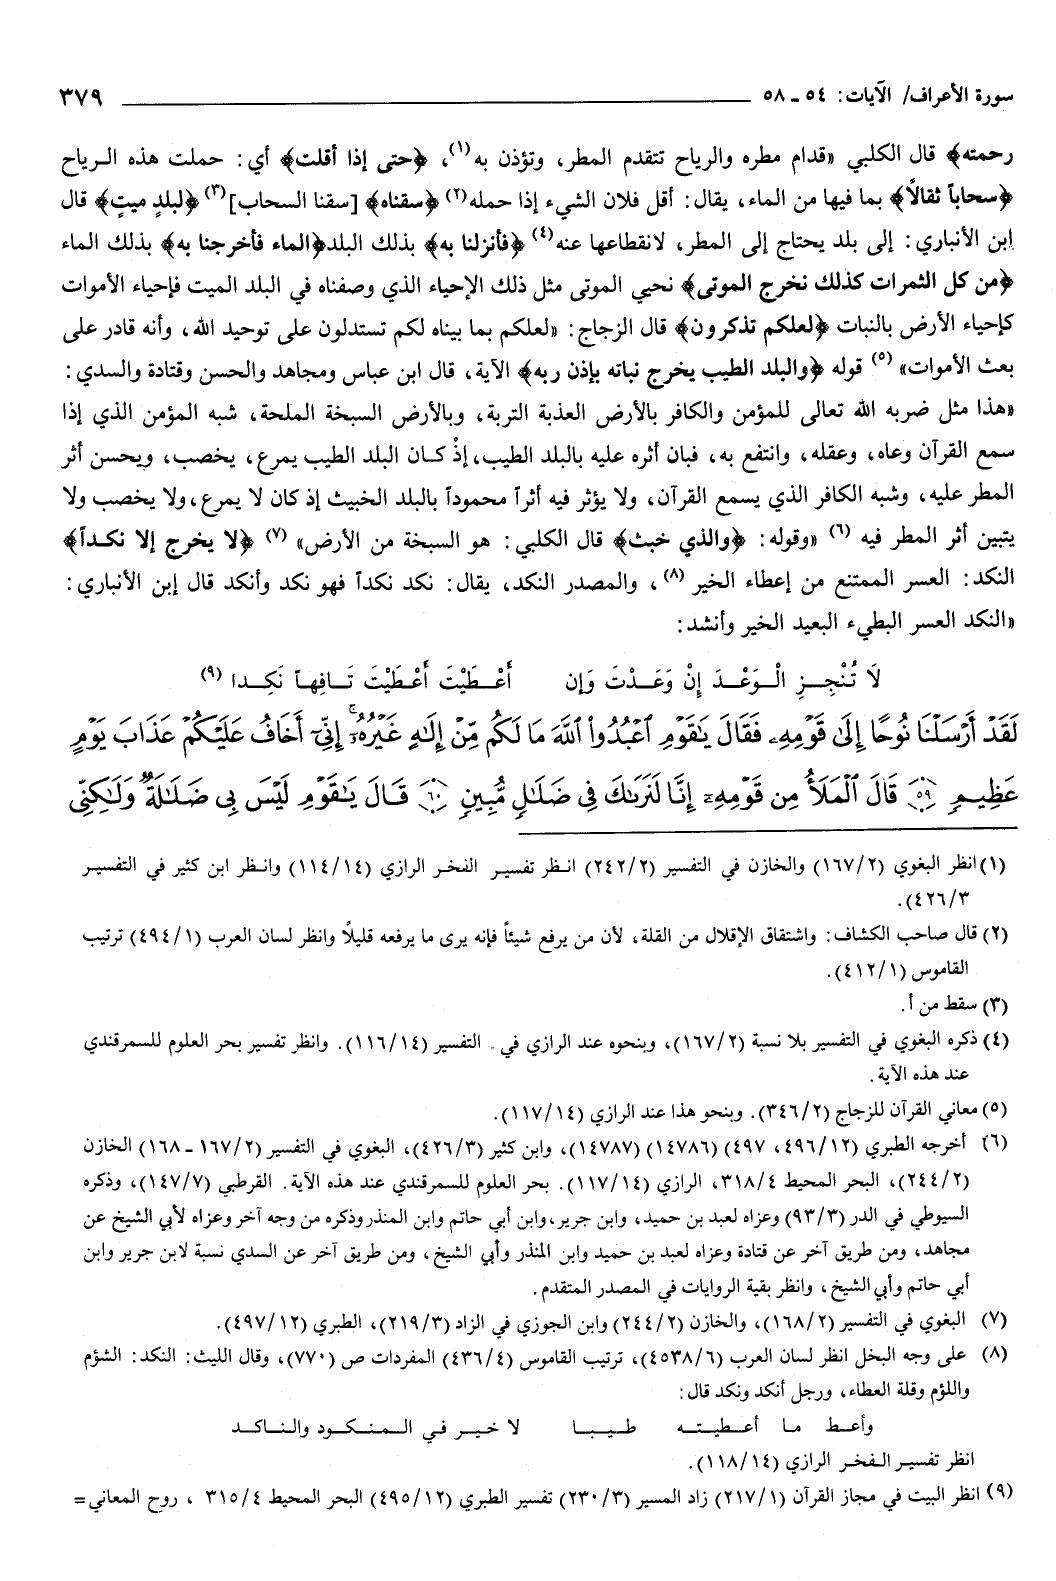 سورة الأعراف/ الآيات: ٥٤ ـ ٥٨ ٣٧٩
رحمته﴾ قال الكلبي «قدام مطره والرياح تتقدم المطر، وتؤذن به(١)، ﴿حتى إذا أقلت﴾ أي: حملت هذه الرياح
﴿سحاباً ثقالاً﴾ بما فيها من الماء، يقال: أقل فلان الشيء إذا حمله(٢) ﴿سقناه﴾ [سقنا السحاب](٣) ﴿لبلدٍ ميتٍ﴾ قال
ابن الأنباري: إلى بلد يحتاج إلى المطر، لانقطاعها عنه(٤) ﴿فأنزلنا به﴾ بذلك البلد﴿الماء فأخرجنا به﴾ بذلك الماء
﴿من كل الثمرات كذلك نخرج الموتى﴾ نحيي الموتى مثل ذلك الإحياء الذي وصفناه في البلد الميت فإحياء الأموات
كإحياء الأرض بالنبات ﴿لعلكم تذكرون﴾ قال الزجاج: «لعلكم بما بيناه لكم تستدلون على توحيد الله، وأنه قادر على
بعث الأموات» (٥) قوله ﴿والبلد الطيب يخرج نباته بإذن ربه﴾ الآية، قال ابن عباس ومجاهد والحسن وقتادة والسدي:
«هذا مثل ضربه الله تعالى للمؤمن والكافر بالأرض العذبة التربة، وبالأرض السبخة الملحة، شبه المؤمن الذي إذا
سمع القرآن وعاه، وعقله، وانتفع به، فبان أثره عليه بالبلد الطيب، إذْ كان البلد الطيب يمرع، يخصب، ويحسن أثر
المطر عليه، وشبه الكافر الذي يسمع القرآن، ولا يؤثر فيه أثراً محموداً بالبلد الخبيث إذ كان لا يمرع،ولا يخصب ولا
يتبين أثر المطر فيه (٦) «وقوله: ﴿والذي خبث﴾ قال الكلبي: هو السبخة من الأرض» (٧) ﴿لا يخرج إلا نكداً﴾
النكد: العسر الممتنع من إعطاء الخير (٨)، والمصدر النكد، يقال: نكد نكداً فهو نكد وأنكد قال إبن الأنباري:
«النكد العسر البطيء البعيد الخير وأنشد:
لَا تُنْجِزِ الْوَعْدَ إِنْ وَعَدْتَ وَإِن أَعْطَيْتَ أَعْطَيْتَ تَافِهاً نَكِدا (٩)
لَقَدْ أَرْسَلْنَا نُوحًا إِلَىٰ قَوْمِهِۦ فَقَالَ يَٰقَوْمِ ٱعْبُدُوا۟ ٱللَّهَ مَا لَكُم مِّنْ إِلَٰهٍ غَيْرُهُۥٓ إِنِّىٓ أَخَافُ عَلَيْكُمْ عَذَابَ يَوْمٍ
عَظِيمٍ ﴿٥٩﴾ قَالَ ٱلْمَلَأُ مِن قَوْمِهِۦٓ إِنَّا لَنَرَىٰكَ فِى ضَلَٰلٍ مُّبِينٍ ﴿٦٠﴾ قَالَ يَٰقَوْمِ لَيْسَ بِى ضَلَٰلَةٌ وَلَٰكِنِّى
(١) انظر البغوي (١٦٧/٢) والخازن في التفسير (٢٤٢/٢) انظر تفسير الفخر الرازي (١١٤/١٤) وانظر ابن كثير في التفسير
٤٢٦/٣).
(٢) قال صاحب الكشاف: واشتقاق الإقلال من القلة، لأن من يرفع شيئاً فإنه يرى ما يرفعه قليلاً وانظر لسان العرب (٤٩٤/١) ترتيب
القاموس (٤١٢/١).
(٣) سقط من أ.
(٤) ذكره البغوي في التفسير بلا نسبة (١٦٧/٢)، وبنحوه عند الرازي في ـ التفسير (١١٦/١٤). وانظر تفسير بحر العلوم للسمرقندي
عند هذه الآية.
(٥) معاني القرآن للزجاج (٣٤٦/٢). وبنحو هذا عند الرازي (١١٧/١٤).
(٦) أخرجه الطبري (٤٩٦/١٢، ٤٩٧) (١٤٧٨٦) (١٤٧٨٧)، وابن كثير (٤٢٦/٣)، البغوي في التفسير (١٦٧/٢ ـ ١٦٨) الخازن
(٢٤٤/٢)، البحر المحيط ٣١٨/٤، الرازي (١١٧/١٤). بحر العلوم للسمرقندي عند هذه الآية. القرطبي (١٤٧/٧)، وذكره
السيوطي في الدر (٩٣/٣) وعزاه لعبد بن حميد، وابن جرير،وابن أبي حاتم وابن المنذر وذكره من وجه آخر وعزاه لأبي الشيخ عن
مجاهد، ومن طريق آخر عن قتادة وعزاه لعبد بن حميد وابن المنذر وأبي الشيخ، ومن طريق آخر عن السدي نسبة لابن جرير وابن
أبي حاتم وأبي الشيخ، وانظر بقية الروايات في المصدر المتقدم.
(٧) البغوي في التفسير (١٦٨/٢)، والخازن (٢٤٤/٢) وابن الجوزي في الزاد (٢١٩/٣)، الطبري (٤٩٧/١٢).
(٨) على وجه البخل انظر لسان العرب (٤٥٣٨/٦)، ترتيب القاموس (٤٣٦/٤) المفردات ص (٧٧٠)، وقال الليث: النكد: الشؤم
واللؤم وقلة العطاء، ورجل أنكد ونكد قال:
وأعط ما أعطيته طيبا لا خير في المنكود والناكد
انظر تفسير الفخر الرازي (١١٨/١٤).
(٩) انظر البيت في مجاز القرآن (٢١٧/١) زاد المسير (٢٣٠/٣) تفسير الطبري (٤٩٥/١٢) البحر المحيط ٣١٥/٤ ، روح المعاني=